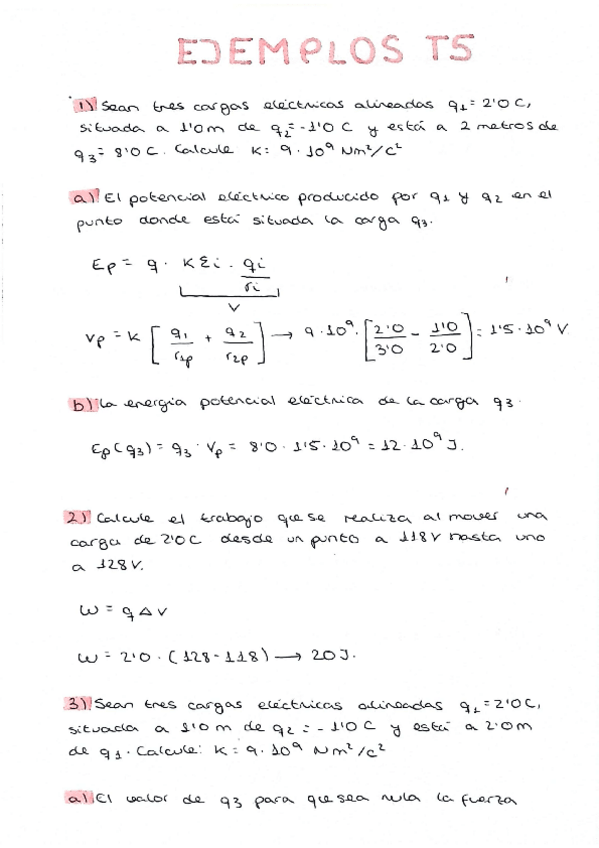 EJEMPLOS T5
1) Sean tres cargas eléctricas alineadas q1 = 2'0 C,
situada a 1'0 m de q2 = -1'0 C y está a 2 metros de
q3 = 8'0 C. Calcule K: 9 · 10⁹ Nm²/C²
a) El potencial eléctrico producido por q1 y q2 en el
punto donde está situada la carga q3.
Ep = q · K Σi · qi/ri
V
Vp = K [ q1/r1p + q2/r2p ] → 9 · 10⁹ · [ 2'0/3'0 - 1'0/2'0 ] = 1'5 · 10⁹ V
b) La energía potencial eléctrica de la carga q3.
Ep(q3) = q3 · Vp = 8'0 · 1'5 · 10⁹ = 12 · 10⁹ J.
2) Calcule el trabajo que se realiza al mover una
carga de 2'0 C desde un punto a 118 V hasta uno
a 128 V.
W = q Δ V
W = 2'0 · (128 - 118) → 20 J.
3) Sean tres cargas eléctricas alineadas q1 = 2'0 C,
situada a 1'0 m de q2 = - 1'0 C y está a 2'0 m
de q1. Calcule: K = 9 · 10⁹ Nm²/C²
a) El valor de q3 para que sea nula la fuerza